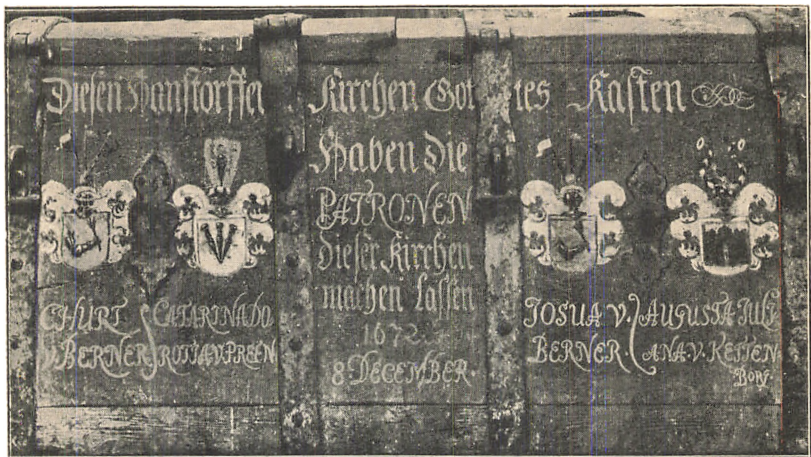 Diesen Hanstorffer Kirchen Got tes Kasten
Haben die
PATRONEN
dieser Kirchen
machen Lassen
1672.
8 DECEMBER.
CHURT
V. BERNER
CATARINA DO
ROTTIA V. PREEN
JOSUA V.
BERNER.
AUGUSTA JULI
ANA. V. KETTEN
Borg